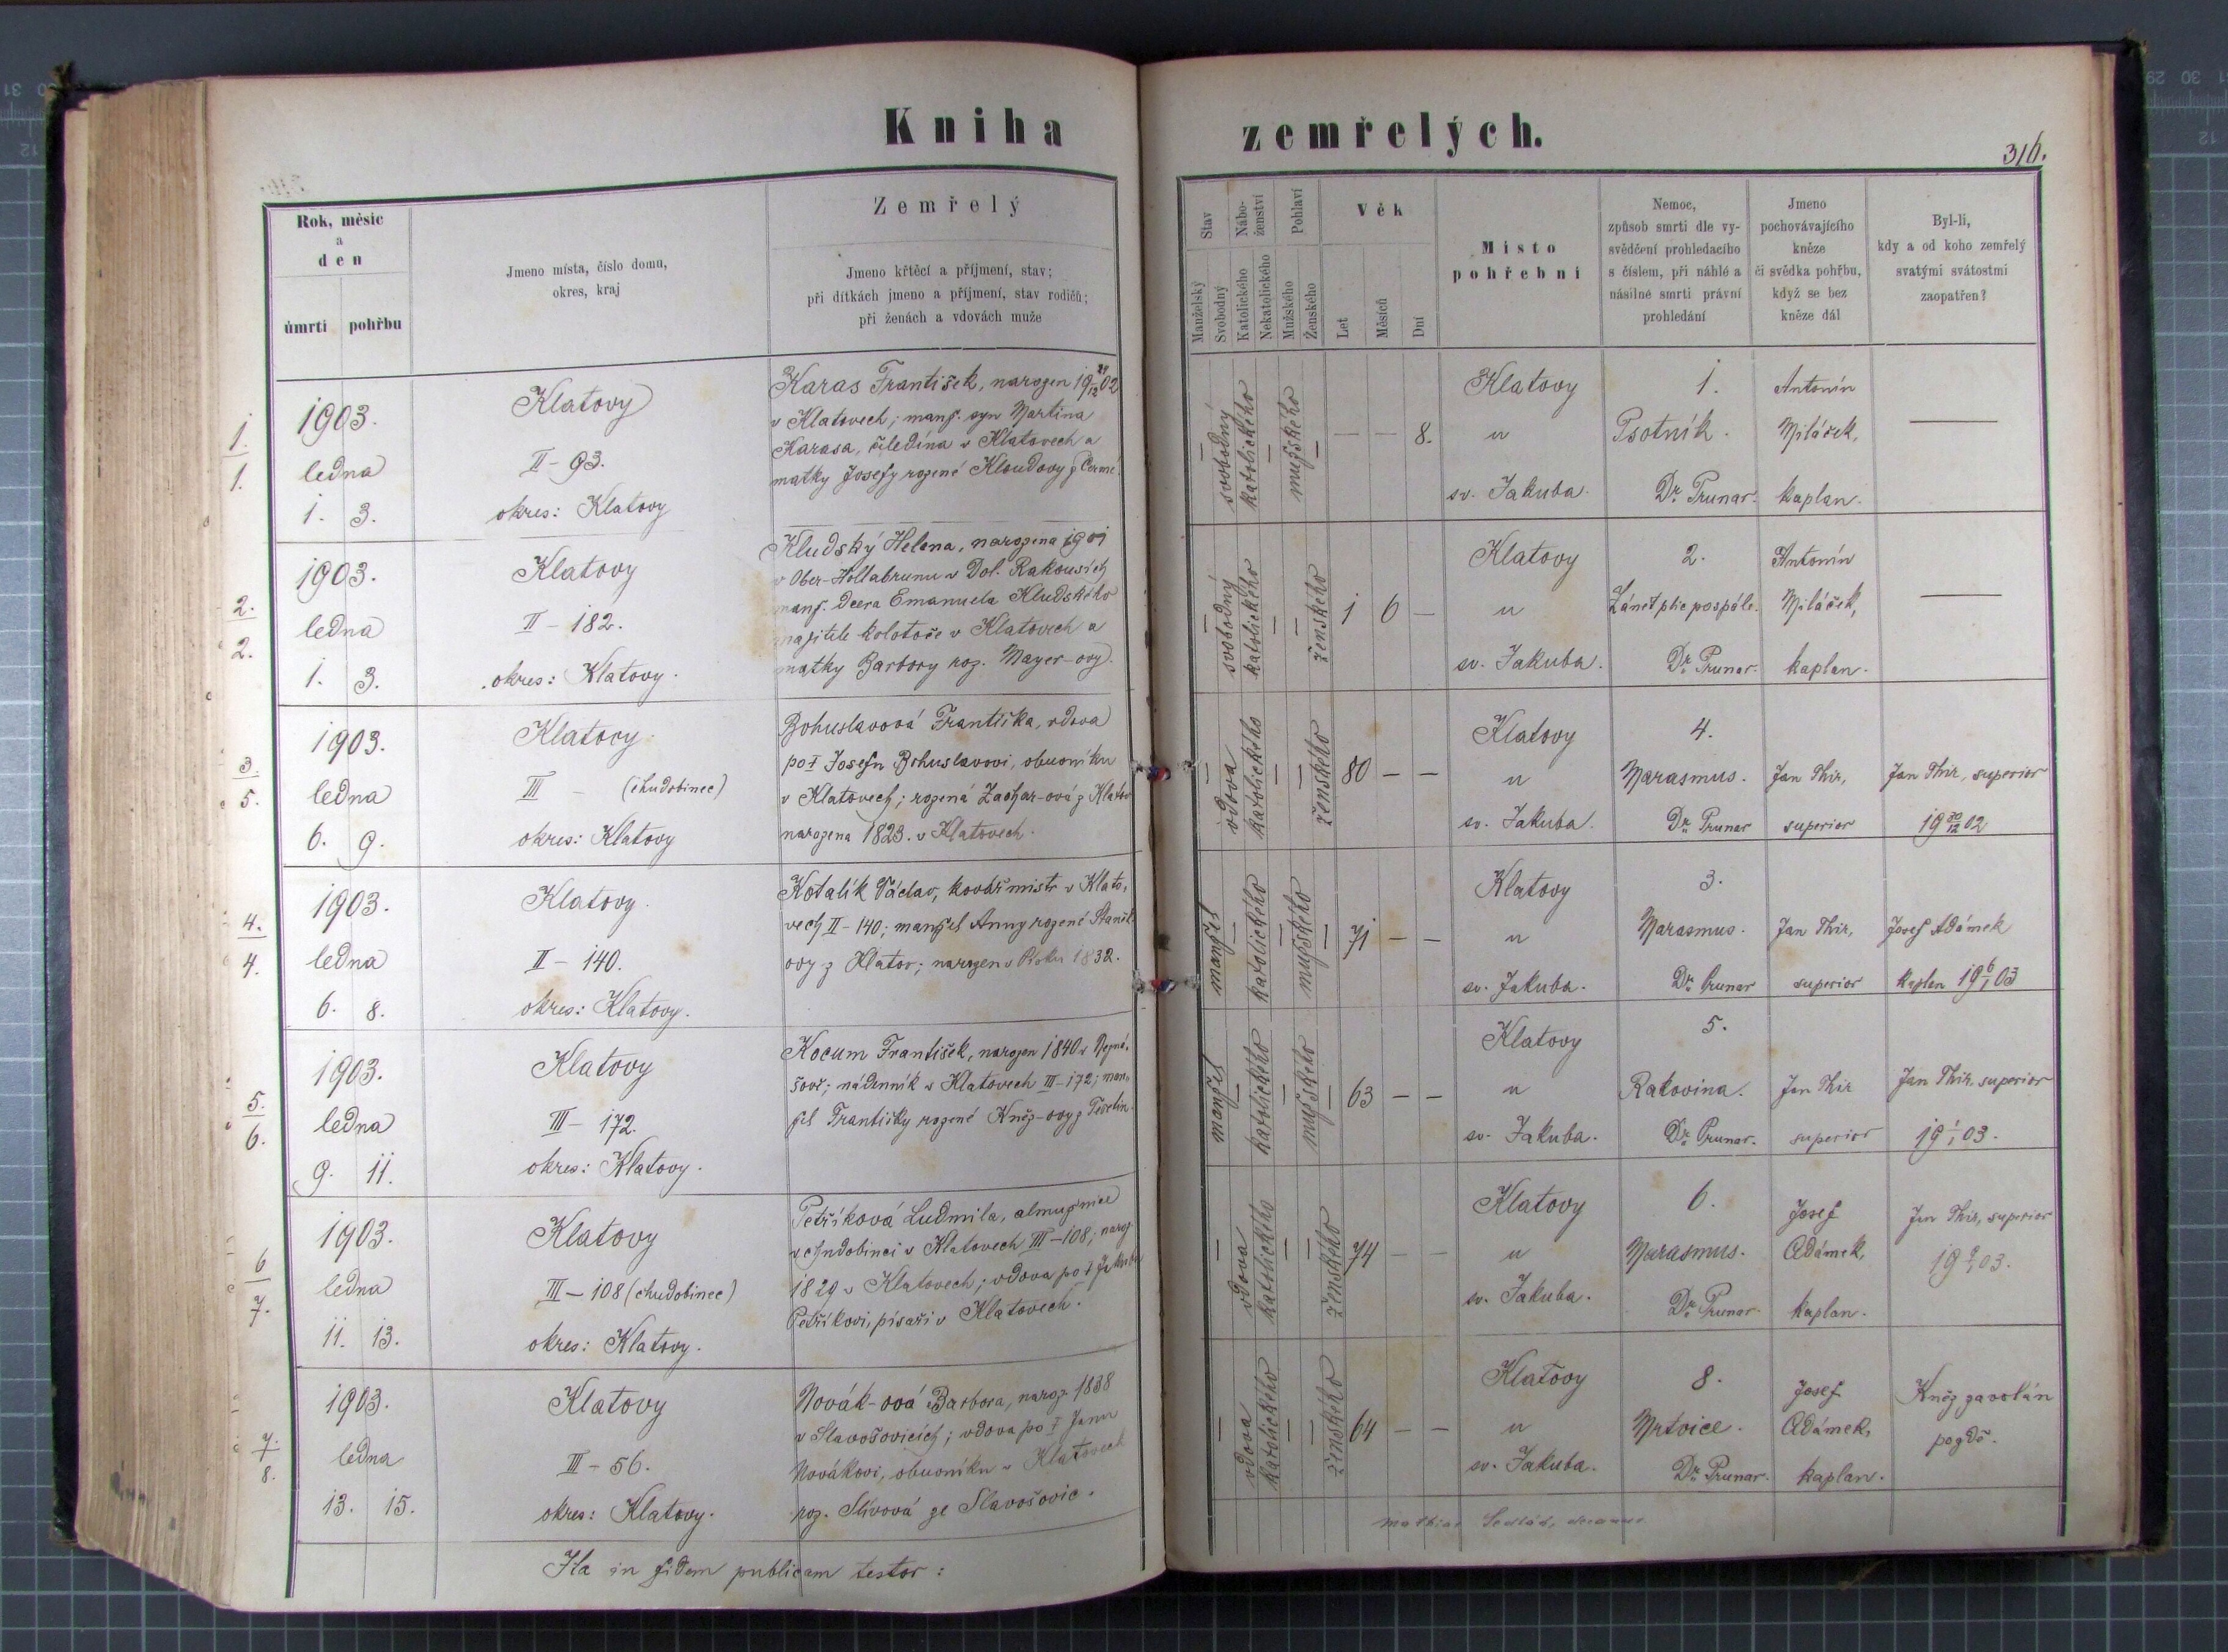 Kniha zemřelých.
316.
Rok, měsíc
a
den
úmrtí pohřbu
Jmeno místa, číslo domu,
okres, kraj
Zemřelý
Jmeno křtěcí a příjmení, stav;
při dítkách jmeno a příjmení, stav rodičů;
při ženách a vdovách muže
Stav
Manželský
Svobodný
Nábo-
ženství
Katolického
Nekatolického
Pohlaví
Mužského
Ženského
Věk
Let
Měsíců
Dní
Místo
pohřební
Nemoc,
způsob smrti dle vy-
svědčení prohledacího
s číslem, při náhlé a
násilné smrti právní
prohledání
Jmeno
pochovávajícího
kněze
či svědka pohřbu,
když se bez
kněze dál
Byl-li,
kdy a od koho zemřelý
svatými svátostmi
zaopatřen?
1.
1.
1903.
ledna
1. 3.
Klatovy
II - 93.
okres: Klatovy
Karas František, narozen 19 29/12 02
v Klatovech; manž. syn Martina
Karasa, čeledína v Klatovech a
matky Josefy rozené Kloudovy z
svobodný
katolického
mužského
— — 8.
Klatovy
u
sv. Jakuba.
1.
Psotník.
Dr. Prunar.
Antonín
Miláček,
kaplan.
—
2.
2.
1903.
ledna
1. 3.
Klatovy
II - 182.
okres: Klatovy.
Kludský Helena, narozena 1901
v Ober-Hollabrunu v Dol. Rakousích
manž. dcera Emanuela Kludského
majitele kolotoče v Klatovech a
matky Barbory roz. Mayer-ovy.
svobodný
katolického
ženského
1 6 —
Klatovy
u
sv. Jakuba.
2.
Zánět plic pospále.
Dr. Prunar.
Antonín
Miláček,
kaplan.
—
3.
5.
1903.
ledna
6. 9.
Klatovy
III - (chudobinec)
okres: Klatovy
Bohuslavová Františka, vdova
po † Josefu Bohuslavovi, obuvníku
v Klatovech; rozená Zachar-ová z Klatov
narozena 1823. v Klatovech.
vdova
katolického
ženského
80 — —
Klatovy
u
sv. Jakuba.
4.
Marasmus.
Dr. Prunar
Jan Thir,
superior
Jan Thir, superior
19 30/12 02
4.
4.
1903.
ledna
6. 8.
Klatovy
II - 140.
okres: Klatovy.
Kotalík Václav, kovář mistr v Klato-
vech II - 140; manžel Anny rozené Staněk
ovy z Klatov; narozen v Roku 1832.
manžel
katolického
mužského
71 — —
Klatovy
u
sv. Jakuba.
3.
Marasmus.
Dr. Prunar
Jan Thir,
superior
Josef Adámek
kaplan 19 6/1 03
5.
6.
1903.
ledna
9. 11.
Klatovy
III - 172.
okres: Klatovy.
Kocum František, narozen 1840 v
nádenník v Klatovech III - 172; man-
žel Františky rozené Kněz-ovy z
manžel
katolického
mužského
63 — —
Klatovy
u
sv. Jakuba.
5.
Rakovina.
Dr. Prunar.
Jan Thir
superior
Jan Thir, superior
19 1/1 03.
6
7.
1903.
ledna
11. 13.
Klatovy
III - 108 (chudobinec)
okres: Klatovy.
Petříková Ludmila, almužnice
v chudobinci v Klatovech III - 108; naroz.
1829 v Klatovech; vdova po † Jakubu
Petříkovi, písaři v Klatovech.
vdova
katolického
ženského
74 — —
Klatovy
u
sv. Jakuba.
6.
Marasmus.
Dr. Prunar.
Josef
Adámek,
kaplan.
Jan Thir, superior
19 9/1 03.
7.
8.
1903.
ledna
13. 15.
Klatovy
III - 56.
okres: Klatovy.
Novák-ová Barbora, naroz. 1838
v Slavošovicích; vdova po † Janu
Novákovi, obuvníku v Klatovech
roz. Slívová ze Slavošovic.
vdova
katolického
ženského
64 — —
Klatovy
u
sv. Jakuba.
8.
Mrtvice.
Dr. Prunar.
Josef
Adámek,
kaplan.
Kněz zavolán
pozdě.
Ita in fidem publicam testor:
Mathias Sedlák,